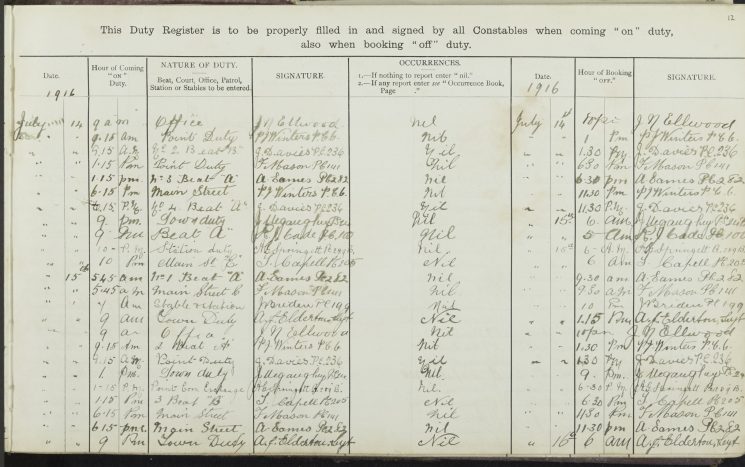 12
This Duty Register is to be properly filled in and signed by all Constables when coming "on" duty,
also when booking "off" duty.
Date. Hour of Coming "on" Duty. NATURE OF DUTY. Beat, Court, Office, Patrol, Station or Stables to be entered. SIGNATURE. OCCURRENCES. 1.—If nothing to report enter "nil." 2.—If any report enter see "Occurrence Book, Page ." Date. Hour of Booking "off." SIGNATURE.
1916 1916
July 14 9 am Office J N Ellwood nil July 14 J N Ellwood
" " 9.15 am Point Duty P J Winters P.C. 6. Nil " " 1 Pm P J Winters P.C. 6.
" " Beat "B" J. Davies P.C. 236 Nil " " 1.30 J. Davies P.C. 236
" " 1.15 Pm Point Duty F. Mason PC 141 Nil " " 6.30 Pm F. Mason PC 141
" " 1.15 pm. No 3 Beat "A" A. Eames P.C. 282 Nil " " 6.30 pm A. Eames P.C. 282
" " 6.15 Pm Main Street P J Winters P.C. 6. Nil " " 11.30 Pm P J Winters P.C. 6.
" " 6.15 P.M. No 4 Beat "A" J. Davies P.C. 236 Nil " " 11.30 J. Davies P.C. 236
" " 9 pm Town duty Nil " 15th 6 am
" " 9 Beat "A" Nil " " 5 Am
" " 10 P.M. Station duty nil. " 15th 6 A.M.
" " 10 Pm Main St "B" T. Capell P.C. 205 Nil " " 6 Am T. Capell P.C. 205
" 15th 5.45 am No 1 Beat "A" A. Eames P.C. 282 nil, " " 9.30 am A. Eames P.C. 282
" " 5.45 a.m Main Street F. Mason PC 141 nil " " 9.30 a.m F. Mason PC 141
" " Am Stable & Station J Briden P.C. 199 Nil " " 10 J Briden P.C. 199
" " 9 am Tower Duty A. J. Elderton, Sergt Nil " " 1.15 Pm A. J. Elderton, Sergt
" " 9 a Office J N Ellwood Nil " " J N Ellwood
" " 9.15 Am 2 Beat "A" P J Winters P.C. 6. nil " " 1.30 Pm P J Winters P.C. 6.
" " 9.15 A.M. Point Duty J. Davies P.C. 236 Nil " " 1.30 J. Davies P.C. 236
" " 1 Pm Town duty Nil. " " 9 Pm.
" " 1.15 P.M. Point Nil. " " 6.30 P.M.
" " 1.15 Pm 3 Beat "B" T. Capell P.C. 205 Nil " " 6.30 Pm T. Capell P.C. 205
" " 6.15 Pm Main Street F. Mason PC 141 Nil " " 11.30 Pm F. Mason PC 141
" " 6.15 pm. Main Street A. Eames P.C. 282 nil " " 11.30 pm A. Eames P.C. 282
" " 9 Pm Tower Duty A. J. Elderton, Sergt Nil " 16th 6 am A. J. Elderton, Sergt